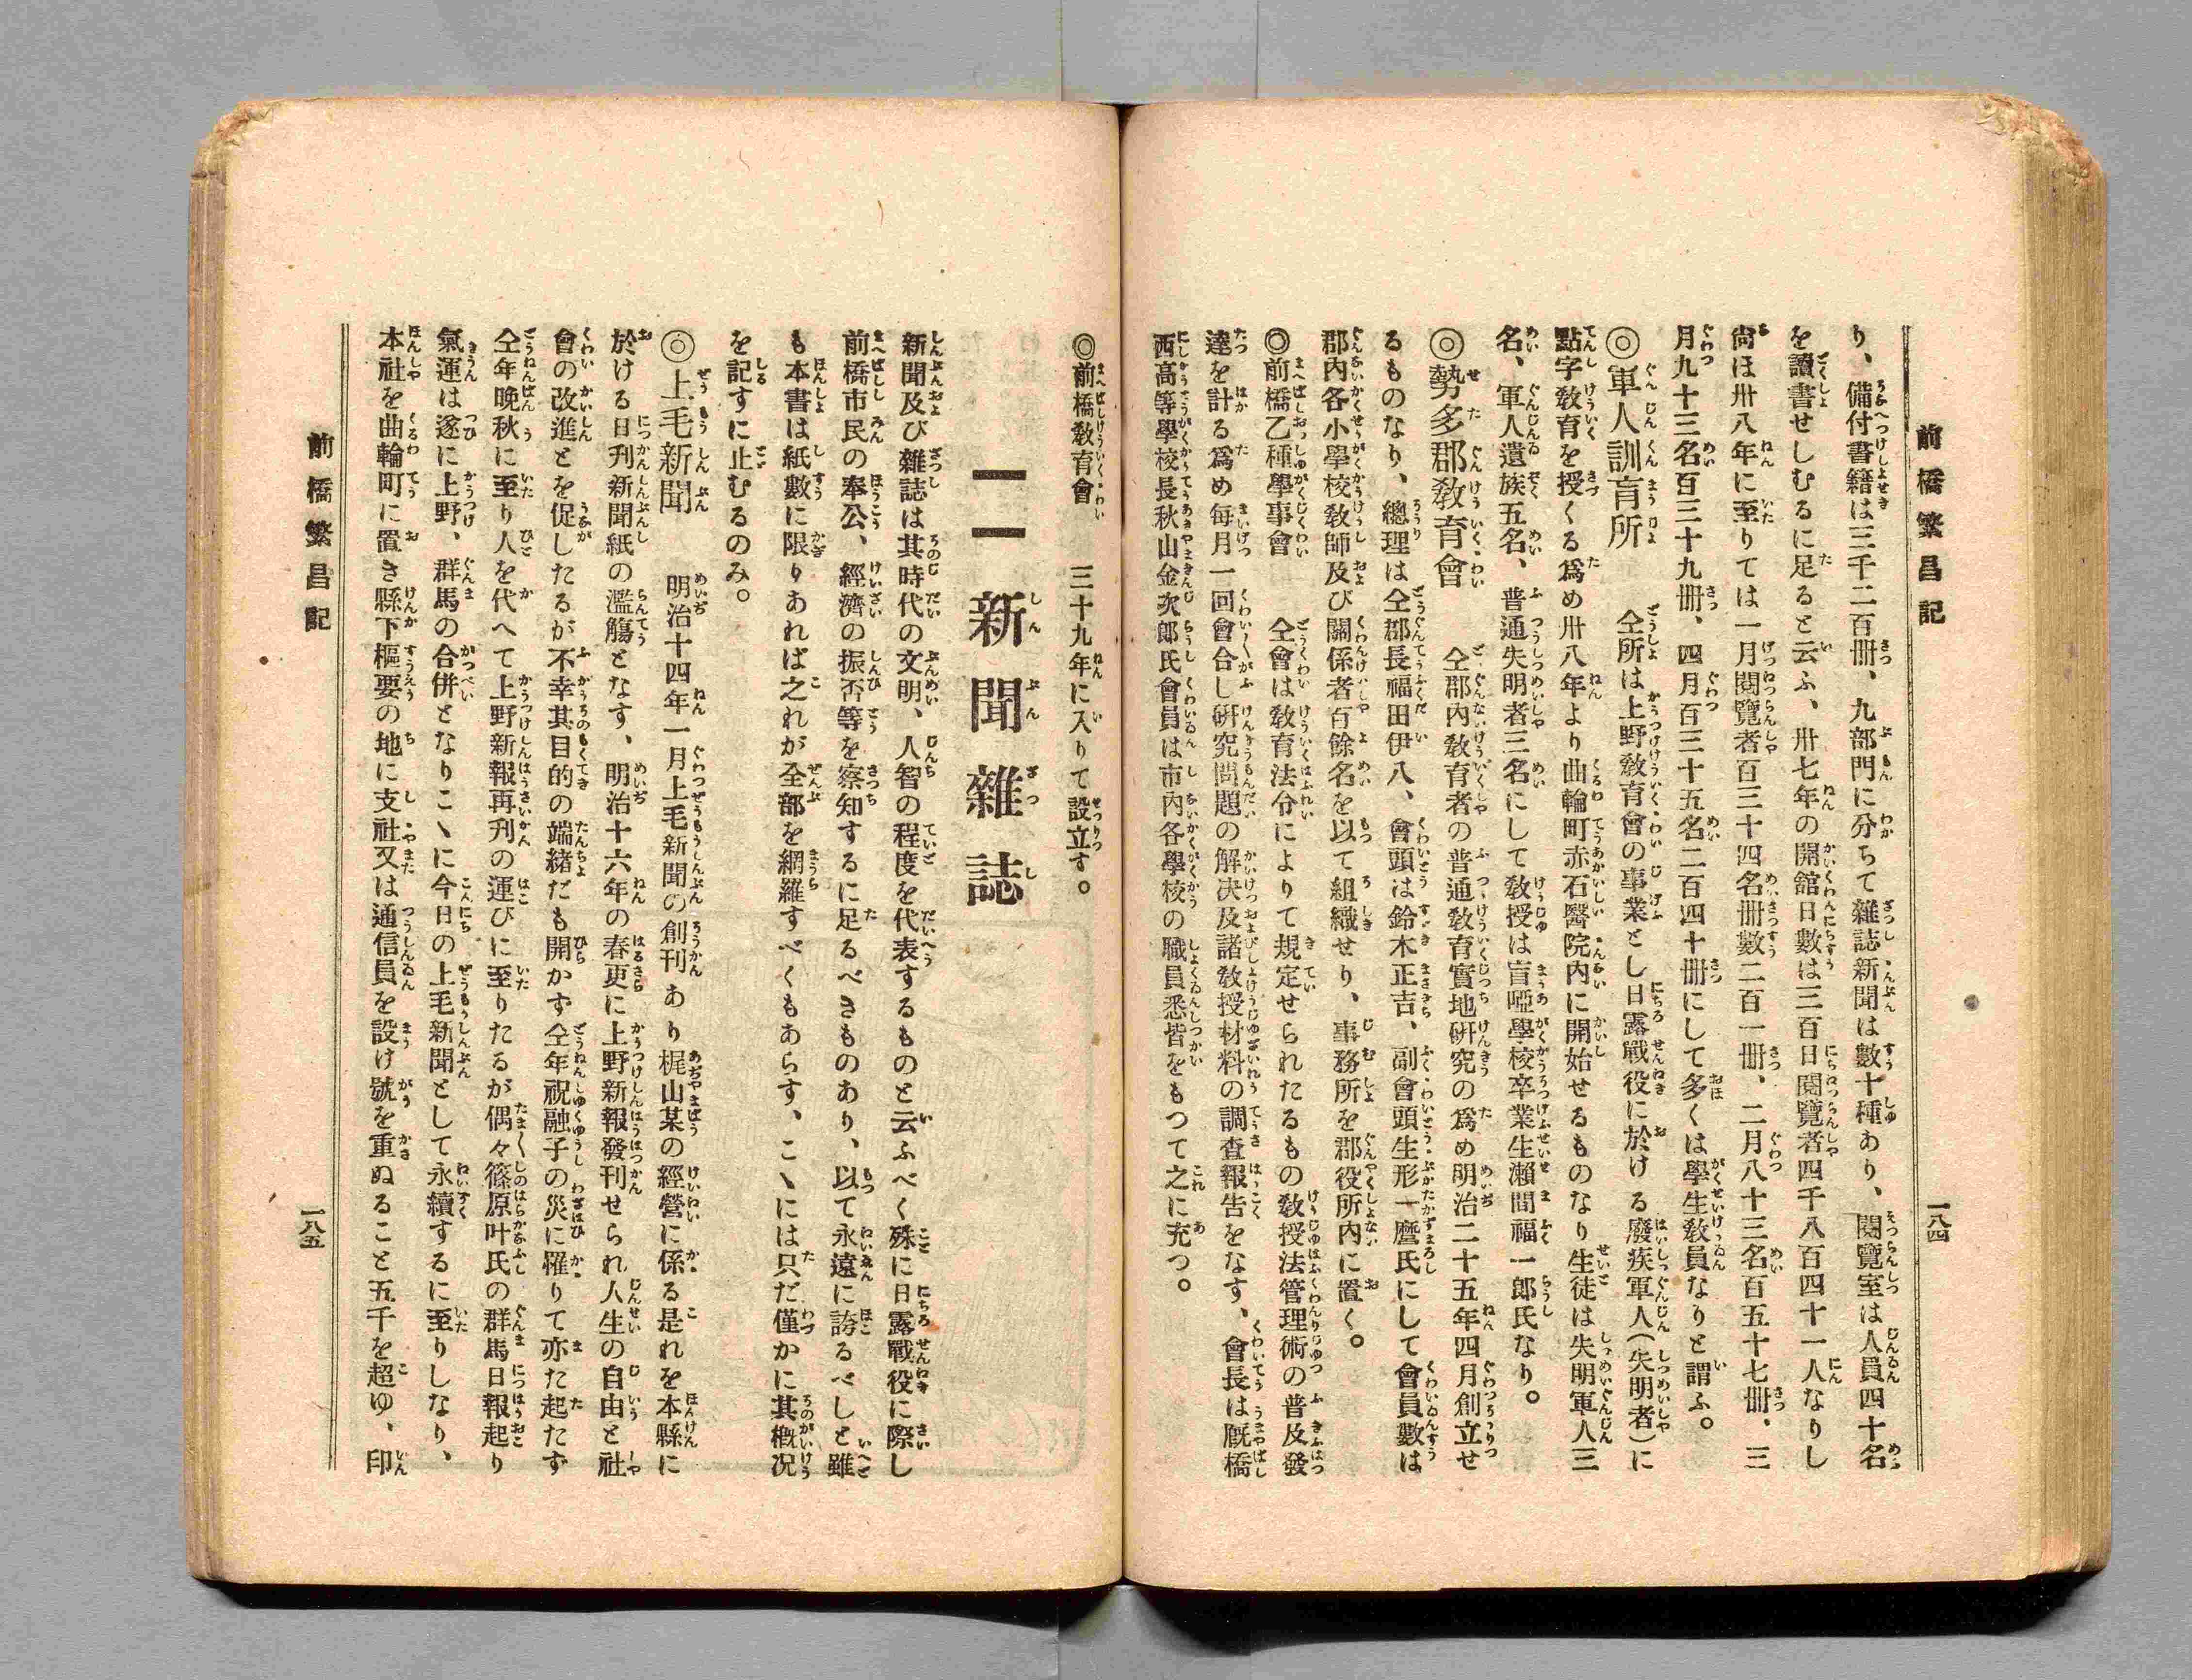 前橋繁昌記
一八四
り、備付書籍は三千二百冊、九部門に分ちて雜誌新聞は數十種あり、閱覽室は人員四十名
を讀書せしむるに足ると云ふ、卅七年の開館日數は三百日閱覽者四千八百四十一人なりし
尙ほ卅八年に至りては一月閱覽者百三十四名冊數二百一冊、二月八十三名百五十七冊、三
月九十三名百三十九冊、四月百三十五名二百四十冊にして多くは學生敎員なりと謂ふ。
◎軍人訓盲所　仝所は上野敎育會の事業とし日露戰役に於ける廢疾軍人(失明者)に
點字敎育を授くる爲め卅八年より曲輪町赤石醫院內に開始せるものなり生徒は失明軍人三
名、軍人遺族五名、普通失明者三名にして敎授は盲啞學校卒業生瀨間福一郎氏なり。
◎勢多郡敎育會　仝郡內敎育者の普通敎育實地硏究の爲め明治二十五年四月創立せ
るものなり、總理は仝郡長福田伊八、會頭は鈴木正吉、副會頭生形一麿氏にして會員數は
郡內各小學校敎師及び關係者百餘名を以て組織せり、事務所を郡役所內に置く。
◎前橋乙種學事會　仝會は敎育法令によりて規定せられたるもの敎授法管理術の普及發
達を計る爲め每月一回會合し硏究問題の解決及諸敎授材料の調査報告をなす、會長は厩橋
西高等學校長秋山金次郎氏會員は市內各學校の職員悉皆をもつて之に充つ。
◎前橋敎育會　三十九年に入りて設立す。
二一新聞雜誌
新聞及び雜誌は其時代の文明、人智の程度を代表するものと云ふべく殊に日露戰役に際し
前橋市民の奉公、經濟の振否等を察知するに足るべきものあり、以て永遠に誇るべしと雖
も本書は紙數に限りあれば之れが全部を網羅すべくもあらす、こヽには只だ僅かに其槪況
を記すに止むるのみ。
◎上毛新聞　明治十四年一月上毛新聞の創刊あり梶山某の經營に係る是れを本縣に
於ける日刊新聞紙の濫觴となす、明治十六年の春更に上野新報發刊せられ人生の自由と社
會の改進とを促したるが不幸其目的の端緖だも開かず仝年祝融子の災に罹りて亦た起たず
仝年晚秋に至り人を代へて上野新報再刊の運びに至りたるが偶々篠原叶氏の群馬日報起り
氣運は遂に上野、群馬の合併となりこヽに今日の上毛新聞として永續するに至りしなり、
本社を曲輪町に置き縣下樞要の地に支社又は通信員を設け號を重ぬること五千を超ゆ、印
前橋繁昌記
一八五